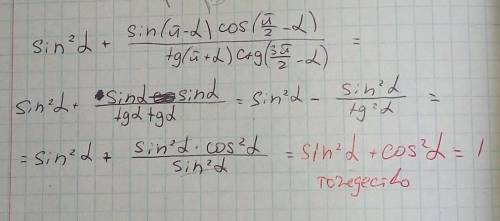 sin²α + (sin(π-α) cos(π/2 - α))/(tg(π+α) ctg(3π/2 - α)) =
sin²α + (sinα sinα)/(tgα tgα) = sin²α - sin²α/tg²α =
= sin²α + (sin²α · cos²α)/sin²α = sin²α + cos²α = 1
тождество